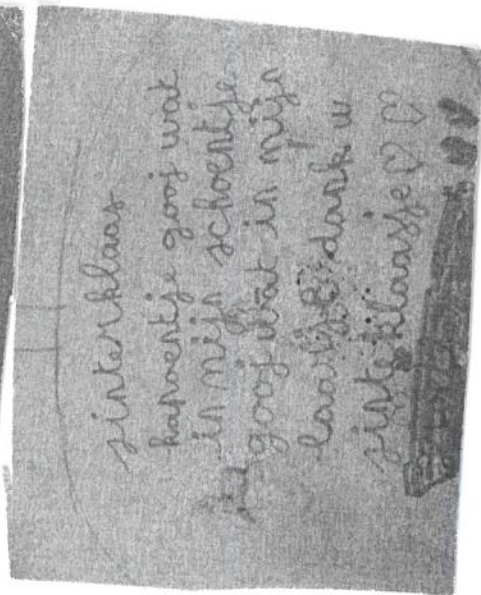 sinterklaas
kapoentje gooj wat
in mijn schoentje
gooj wat in mijn
laarsje dank u
sinteklaasje ♡♡